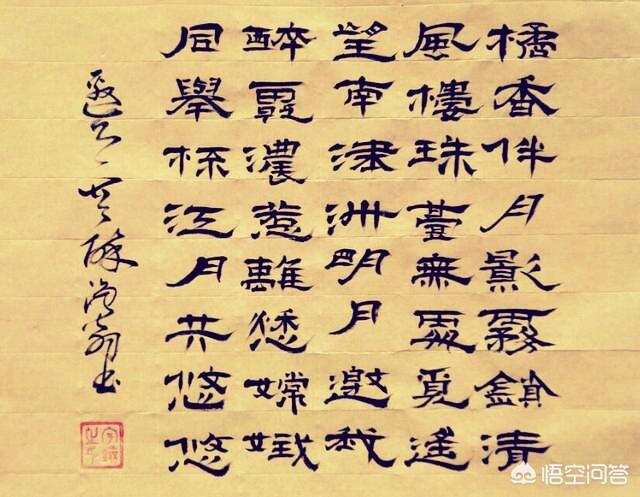 橘香伴月影霧鎖清
風樓珠臺無處覓遙
望南津洲明月邀我
醉霞濃惹離愁嫦娥
同舉杯江月共悠悠
悟空问答